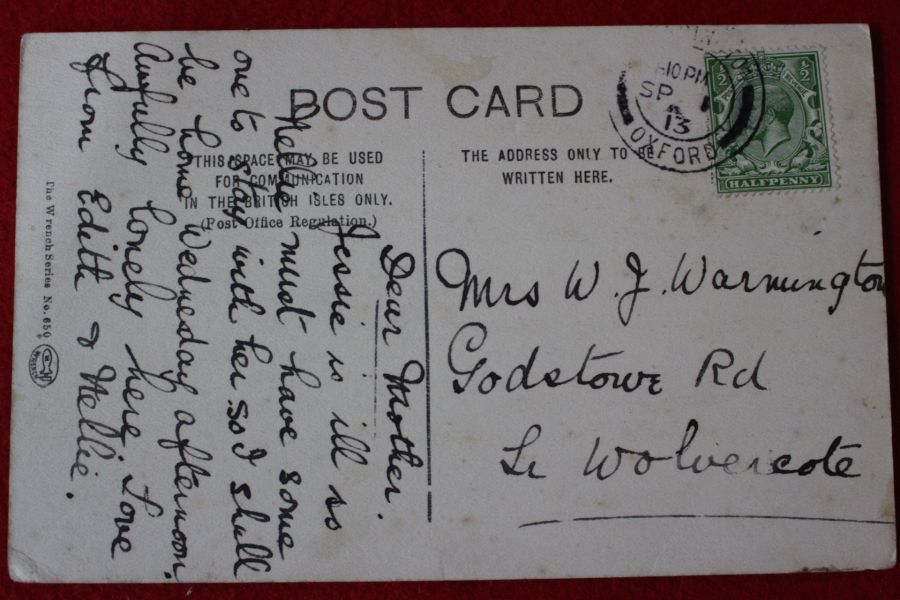 POST CARD
THIS SPACE MAY BE USED
FOR COMMUNICATION
IN THE BRITISH ISLES ONLY.
(Post Office Regulation.)
THE ADDRESS ONLY TO BE
WRITTEN HERE.
10 PM
SP 1
13
OXFORD
½ ½
HALFPENNY
Dear Mother.
Jessie is ill so
Nellie must have some
one to stay with her so I shall
be home Wednesday afternoon.
Awfully lonely here, Love
from Edith & Nellie.
Mrs W. J. Warmington
Godstowe Rd
Lr Wolvercote
The Wrench Series No. 659